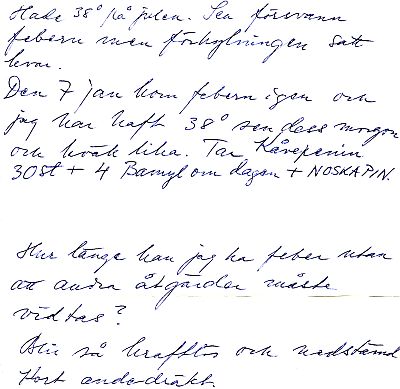 Hade 38° på julen. Sen försvann
febern men förkylningen satt
kvar.
Den 7 jan kom febern igen och
jag har haft 38° sen dess morgon
och kväll lika. Tar Kåvepenin
30st + 4 Bamyl om dagen + NOSKAPIN.
Hur länge kan jag ha feber utan
att andra åtgärder måste
vidtas?
Blir så kraftlös och nedstämd
Kort andedräkt.